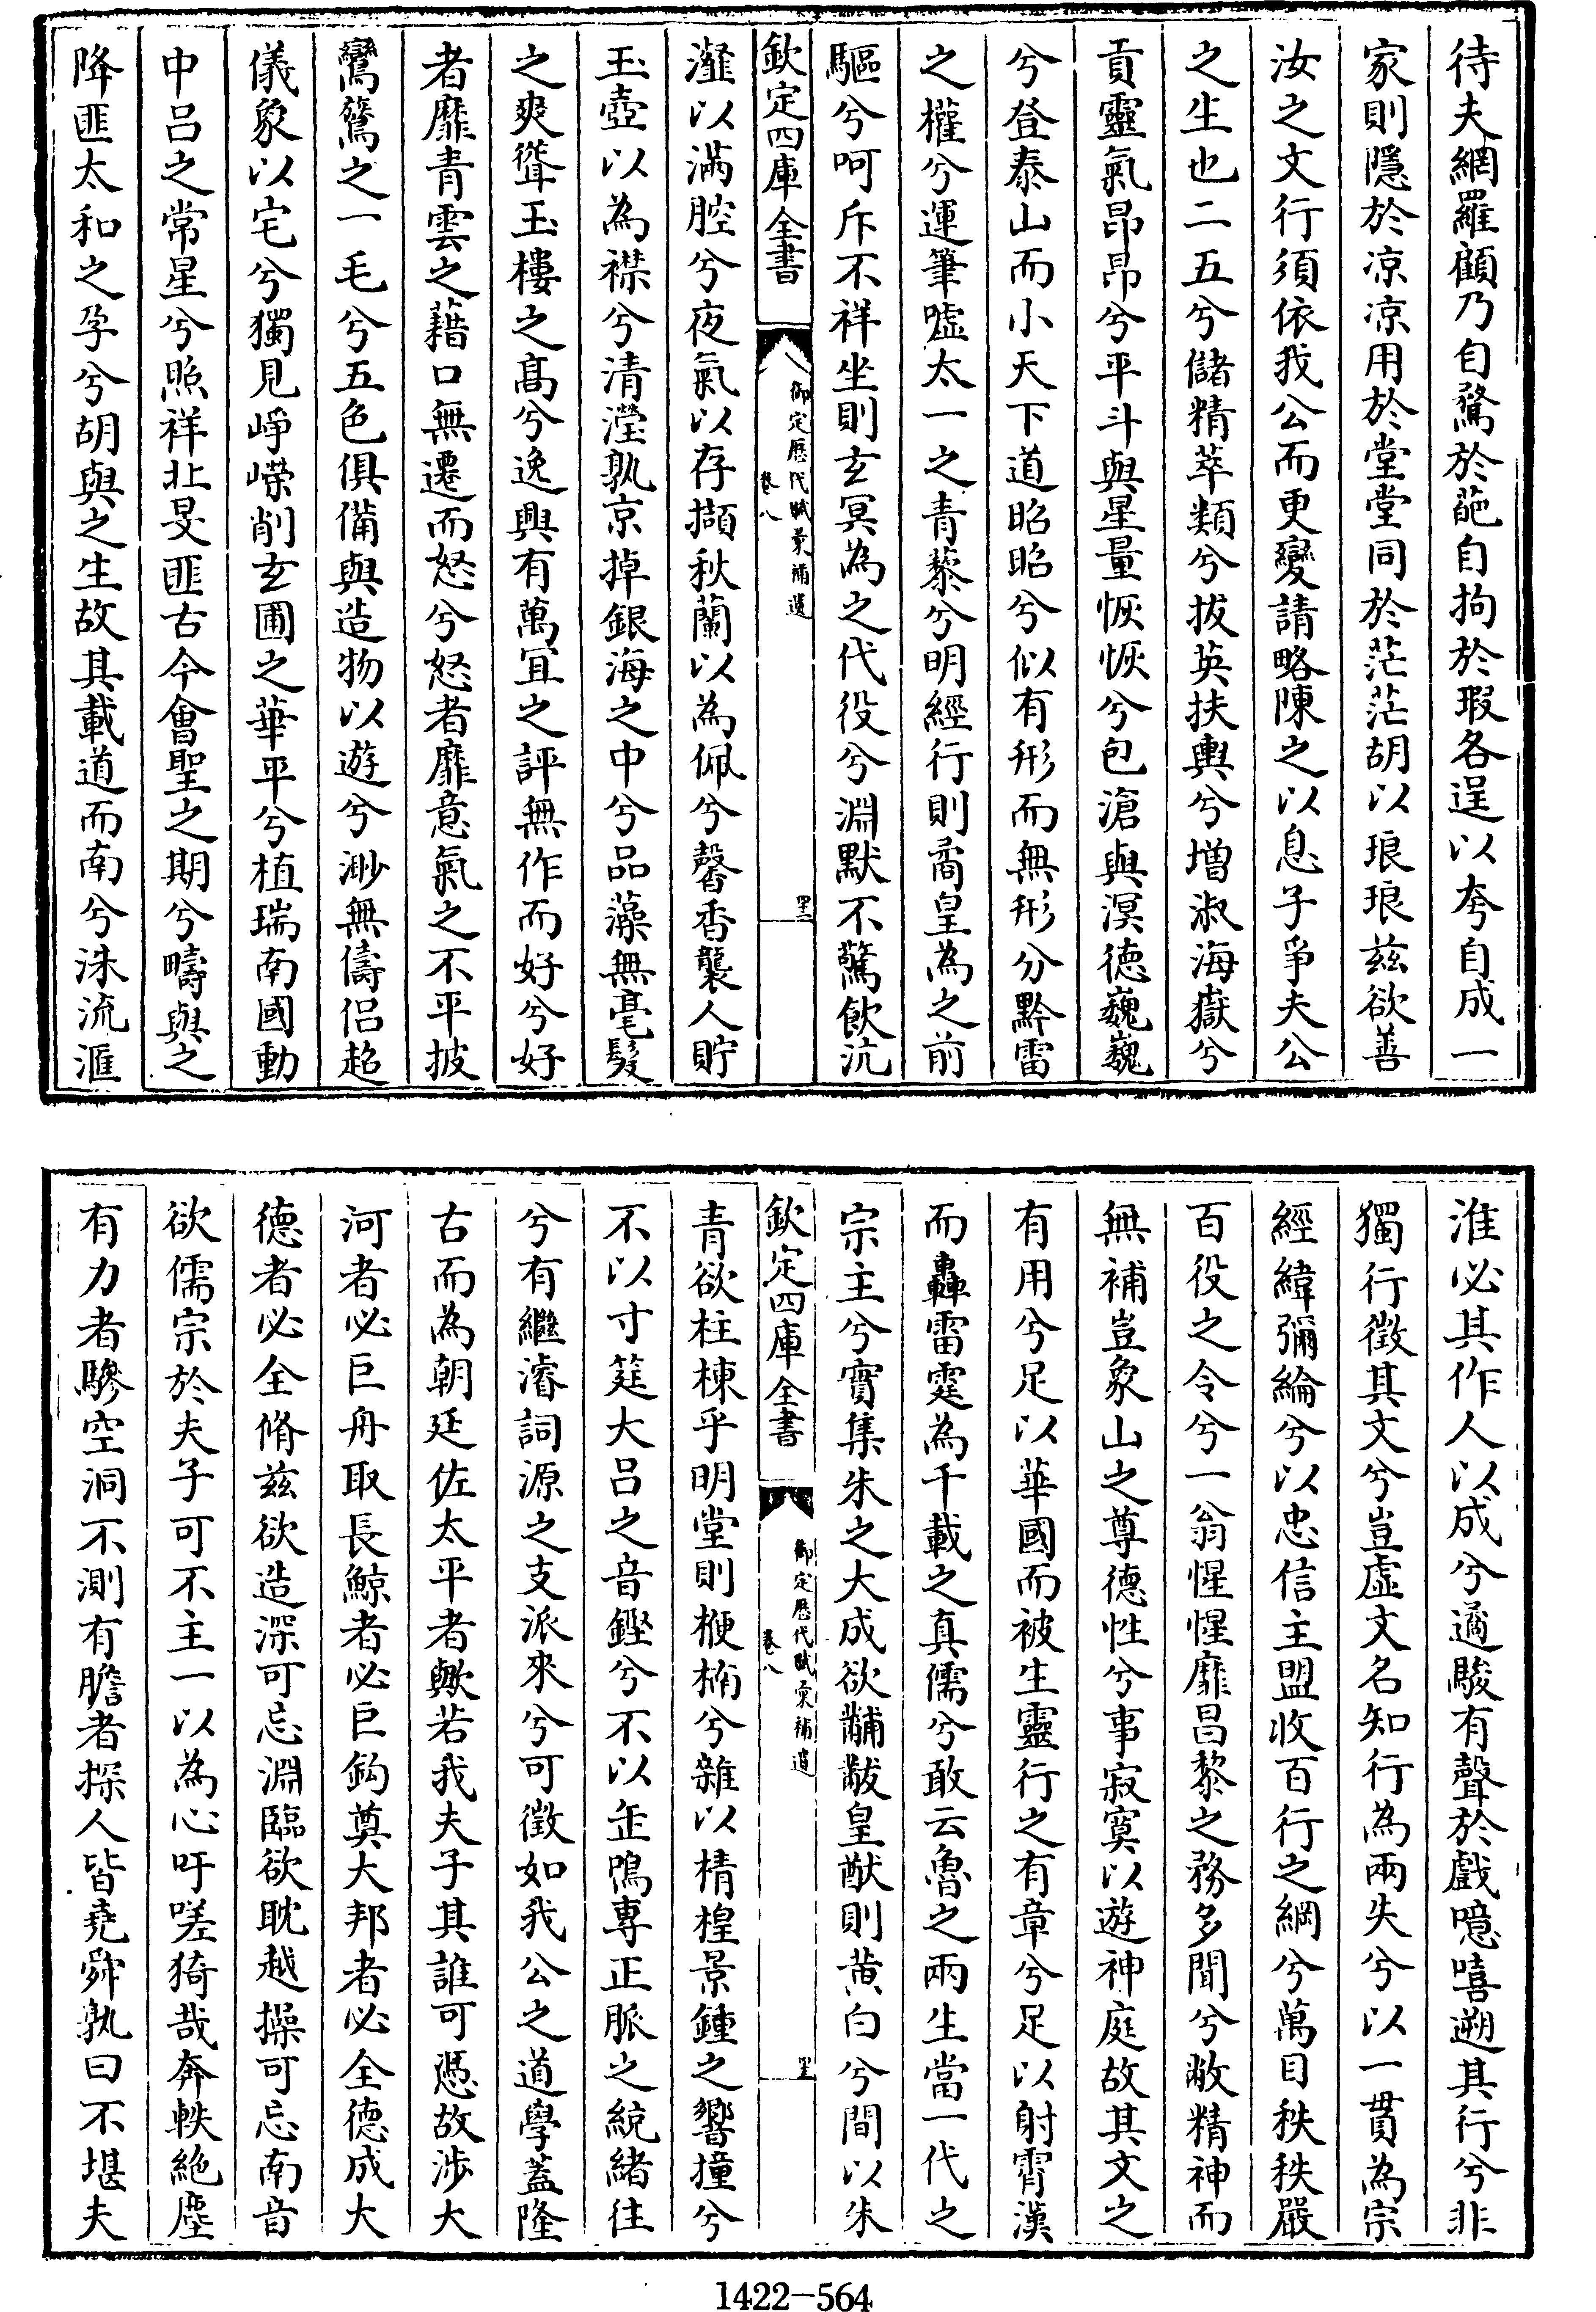 待夫網羅顧乃自騖於葩自拘於瑕各逞以夸自成一
家則隱於凉凉用於堂堂同於茫茫胡以琅琅兹欲善
汝之文行須依我公而更變請略陳之以息子爭夫公
之生也二五兮儲精萃類兮拔英扶輿兮增淑海嶽兮
貢靈氣昂昂兮平斗與星量恢恢兮包滄與溟德巍巍
兮登泰山而小天下道昭昭兮似有形而無形分黔雷
之權兮運筆噓太一之青藜兮明經行則矞皇為之前
驅兮呵斥不祥坐則玄冥為之代役兮淵默不驚飲沆
欽定四庫全書
御定歷代賦彙補遺
卷八
瀣以滿腔兮夜氣以存擷秋蘭以為佩兮馨香襲人貯
玉壺以為襟兮清瀅孰京掉銀海之中兮品藻無毫髮
之爽聳玉樓之高兮逸興有萬冝之評無作而好兮好
者靡青雲之藉口無遷而怒兮怒者靡意氣之不平披
鸞鷟之一毛兮五色俱備與造物以遊兮渺無儔侣超
儀象以宅兮獨見崢嶸削玄圃之華平兮植瑞南國動
中吕之常星兮照祥北旻匪古今會聖之期兮疇與之
降匪太和之孕兮胡與之生故其載道而南兮洙流滙
淮必其作人以成兮遹駿有聲於戲噫嘻遡其行兮非
獨行徵其文兮豈虛文名知行為兩失兮以一貫為宗
經緯彌綸兮以忠信主盟收百行之綱兮萬目秩秩嚴
百役之令兮一翁惺惺靡昌黎之務多聞兮敝精神而
無補豈象山之尊德性兮事寂寞以遊神庭故其文之
有用兮足以華國而被生靈行之有章兮足以射霄漢
而轟雷霆為千載之真儒兮敢云魯之兩生當一代之
宗主兮實集朱之大成欲黼黻皇猷則黄白兮間以朱
欽定四庫全書
御定歷代賦彙補遺
卷八
青欲柱棟乎明堂則楩楠兮雜以棈楻景鍾之響撞兮
不以寸筳大吕之音鏗兮不以缶鳴專正脈之統緒往
兮有繼濬詞源之支派來兮可徵如我公之道學蓋隆
古而為朝廷佐太平者歟若我夫子其誰可憑故涉大
河者必巨舟取長鯨者必巨鈎奠大邦者必全德成大
德者必全脩兹欲造深可忘淵臨欲耽越操可忘南音
欲儒宗於夫子可不主一以為心吁嗟猗哉奔軼絶塵
有力者驂空洞不測有膽者探人皆堯舜孰曰不堪夫
1422-564